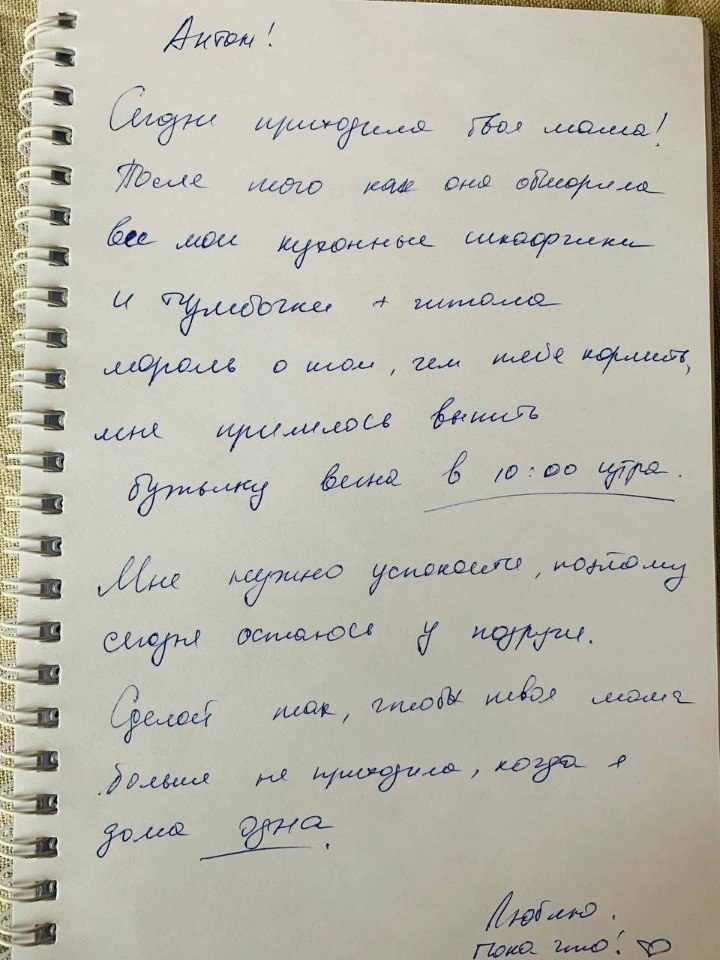 Антон!
Сегодня приходила твоя мама!
После того как она обшарила
все мои кухонные шкафчики
и тумбочки + читала
мораль о том, чем тебе кормить,
мне пришлось выпить
бутылку вина в 10:00 утра.
Мне нужно успокоится, поэтому
сегодня остаюсь у подруги.
Сделай так, чтобы твоя мама
больше не приходила, когда я
дома одна.
Люблю.
Пока что! ♡